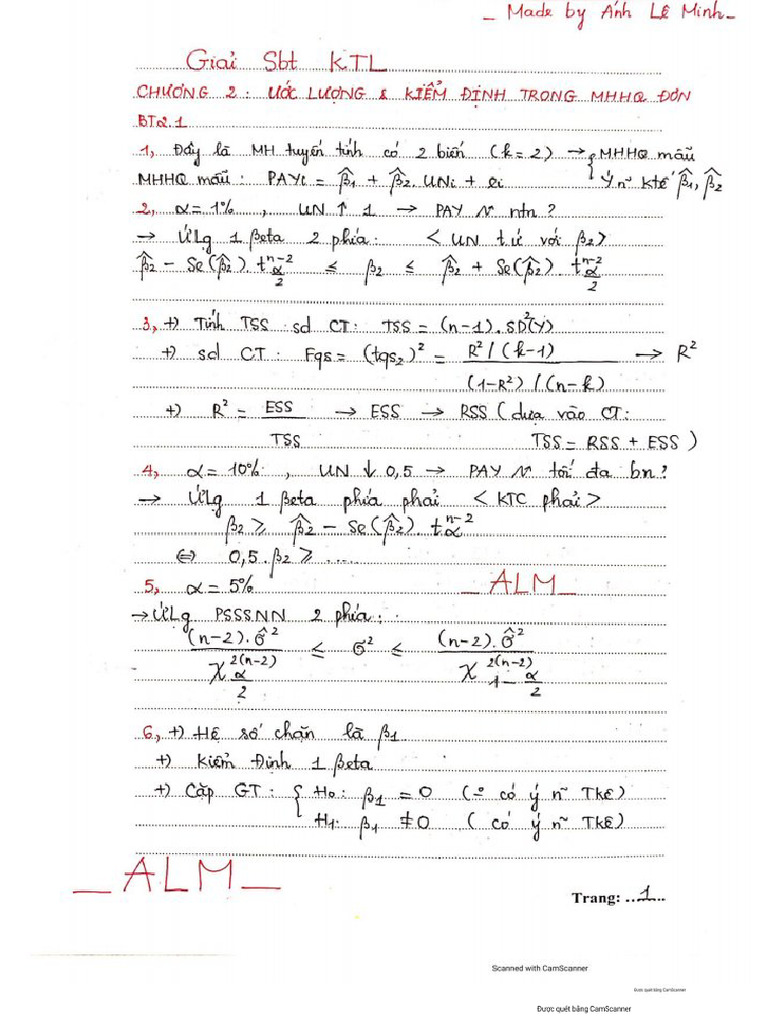 _ Made by Ánh Lê Minh_
Giải Sbt KTL
CHƯƠNG 2: ƯỚC LƯỢNG & KIỂM ĐỊNH TRONG MHHQ ĐƠN
BT2.1
1, Đây là MH tuyến tính có 2 biến (k=2) → { MHHQ mẫu
MHHQ mẫu: PAYi = β̂1 + β̂2.UNi + ei Ý n~ ktế β̂1, β̂2
2, α = 1% , UN ↑ 1 → PAY ntn?
→ ƯLg 1 Beta 2 phía: < UN t.ứ với β2 >
β̂2 - Se(β̂2). t^(n-2)_(α/2) ≤ β2 ≤ β̂2 + Se(β̂2). t^(n-2)_(α/2)
3, +) Tính TSS sd CT: TSS = (n-1). SD²(Y)
+) sd CT: Fqs = (tqs2)² = R²/(k-1) → R²
(1-R²)/(n-k)
+) R² = ESS → ESS → RSS (dựa vào CT:
TSS TSS = RSS + ESS)
4, α = 10% , UN ↓ 0,5 → PAY tối đa bn?
→ ƯLg 1 Beta phía phải < KTC phải >
β2 ≥ β̂2 - Se(β̂2). t^(n-2)_α
⇔ 0,5.β2 ≥ .....
5, α = 5% _ALM_
→ ƯLg PSSSNN 2 phía:
(n-2).σ̂² / χ^2(n-2)_(α/2) ≤ σ² ≤ (n-2).σ̂² / χ^2(n-2)_(1-α/2)
6, +) Hệ số chặn là β1
+) Kiểm Định 1 Beta
+) Cặp GT: { H0: β1 = 0 (-o có ý n~ TKê)
H1: β1 ≠ 0 ( có ý n~ TKê)
_ALM_
Trang: ..1...
Scanned with CamScanner
Được quét bằng CamScanner
Được quét bằng CamScanner